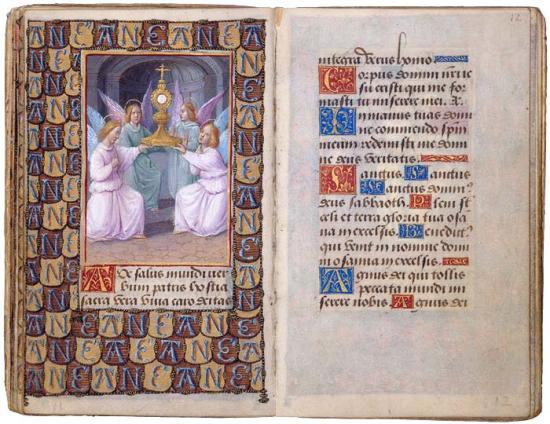 ANEANEANE
Ave salus mundi ver
bum patris hostia
sacra vera viva caro deitas
12
integra verus homo
Corpus domini nri ie
su cristi qui me for
masti tu miserere mei. R.
In manus tuas domi
ne commendo spm
meum redemisti me domi
ne deus veritatis.
Sanctus. Sanctus
Sanctus domin9
deus sabbaoth. Pleni st
celi et terra gloria tua osa
na in excelsis. Benedict9
qui venit in nomine domi
ni osanna in excelsis.
Agnus dei qui tollis
peccata mundi mi
serere nobis. Agnus dei